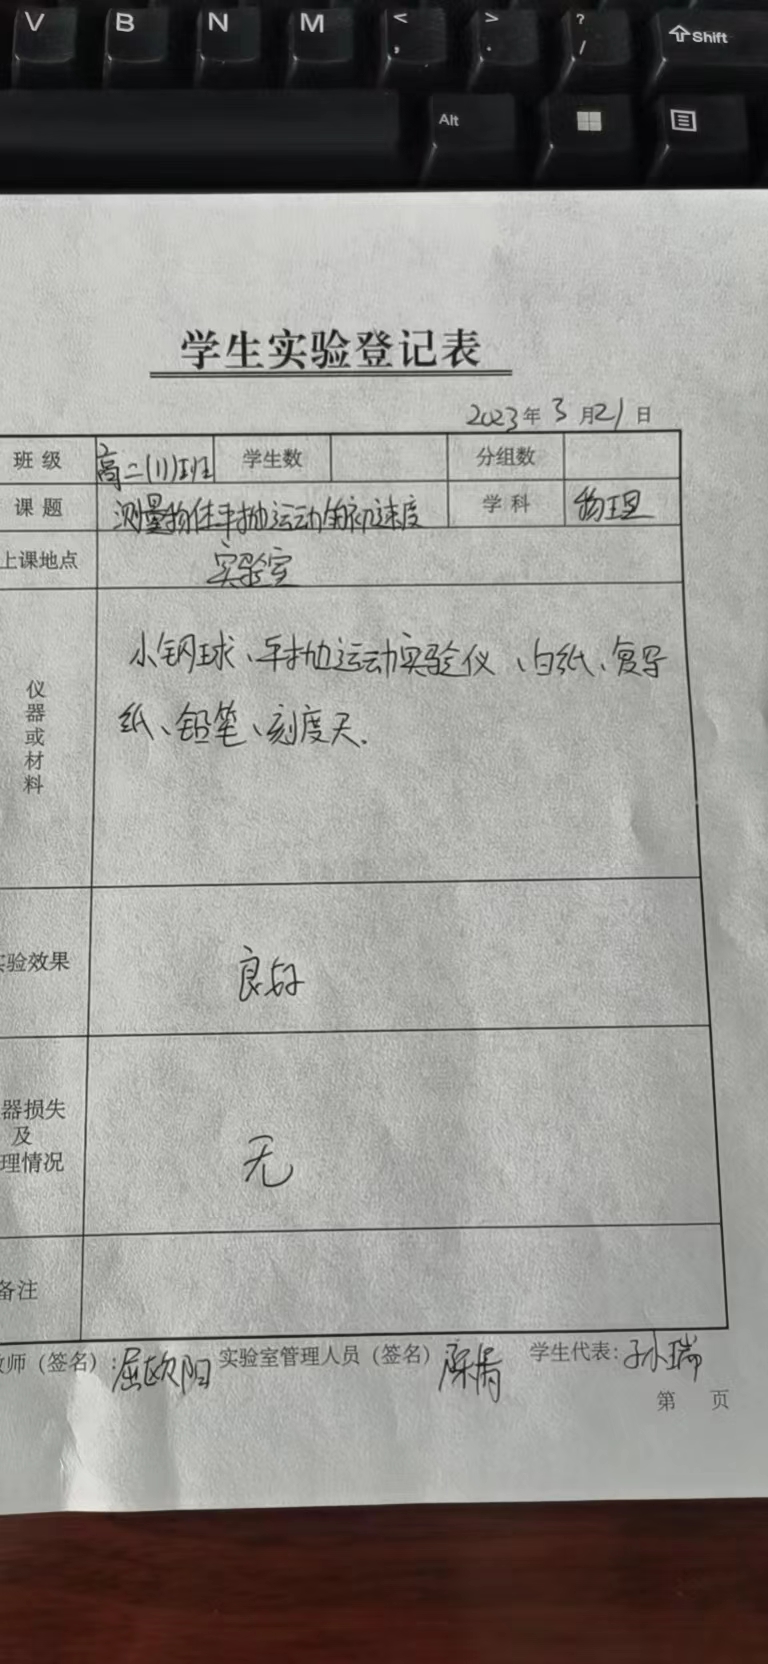 V B N M < , > . ? / Shift
Alt
学生实验登记表
2023年3月21日
班级 高二(11)班 学生数 分组数
课题 测量物体平抛运动的初速度 学科 物理
上课地点 实验室
仪器或材料 小钢球、平抛运动实验仪、白纸、复写
纸、铅笔、刻度尺.
验效果 良好
器损失
及
理情况 无
备注
师（签名）:屈欧阳 实验室管理人员（签名） 学生代表:孙瑞
第 页